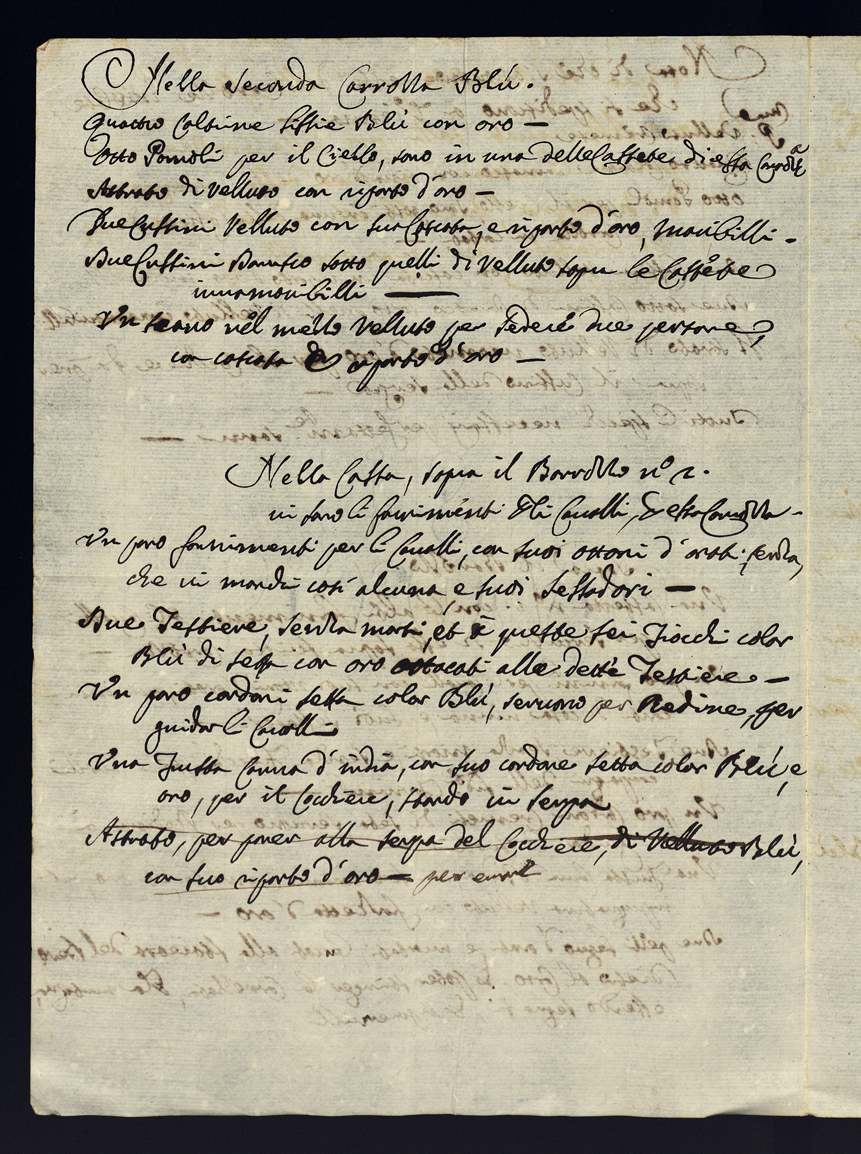 Nella seconda Carrozza Blù.
Quattro Coltrine lissie Blù con oro —
Otto Pomoli per il Ciello, sono in una delle Cassette di essa Carozza
Strato di velluto con riporto d'oro —
Due Cussini velluto con sua Cascata, e riporto d'oro, movibilli -
Due Cussini Damasco sotto quelli di velluto sopra le Cassette
innamovibilli —
Un scano nel mezzo velluto per sedere due persone,
con cascata e riporto d'oro —
Nella Cassa, sopra il Barozzo nº 2.
vi sono li fornimenti delli Cavalli, di essa Carozza -
Un paro fornimenti per li Cavalli, con suoi ottoni d'orati, senza
che vi manchi così alcuna, e suoi
Due Testiere, senza morsi, et a queste sei Fiocchi color
Blù di setta con oro attacati alle dette Testiere —
Un paro cordoni setta color Blù, servono per Redine, per
guidar li Cavalli
Una Frusta Canna d'india, con suo cordone setta color Blù, e
oro, per il Cochiere, stando in serpa
Strato, per poner alla serpa del Cochiere, di Velluto Blù,
con suo riporto d'oro — per